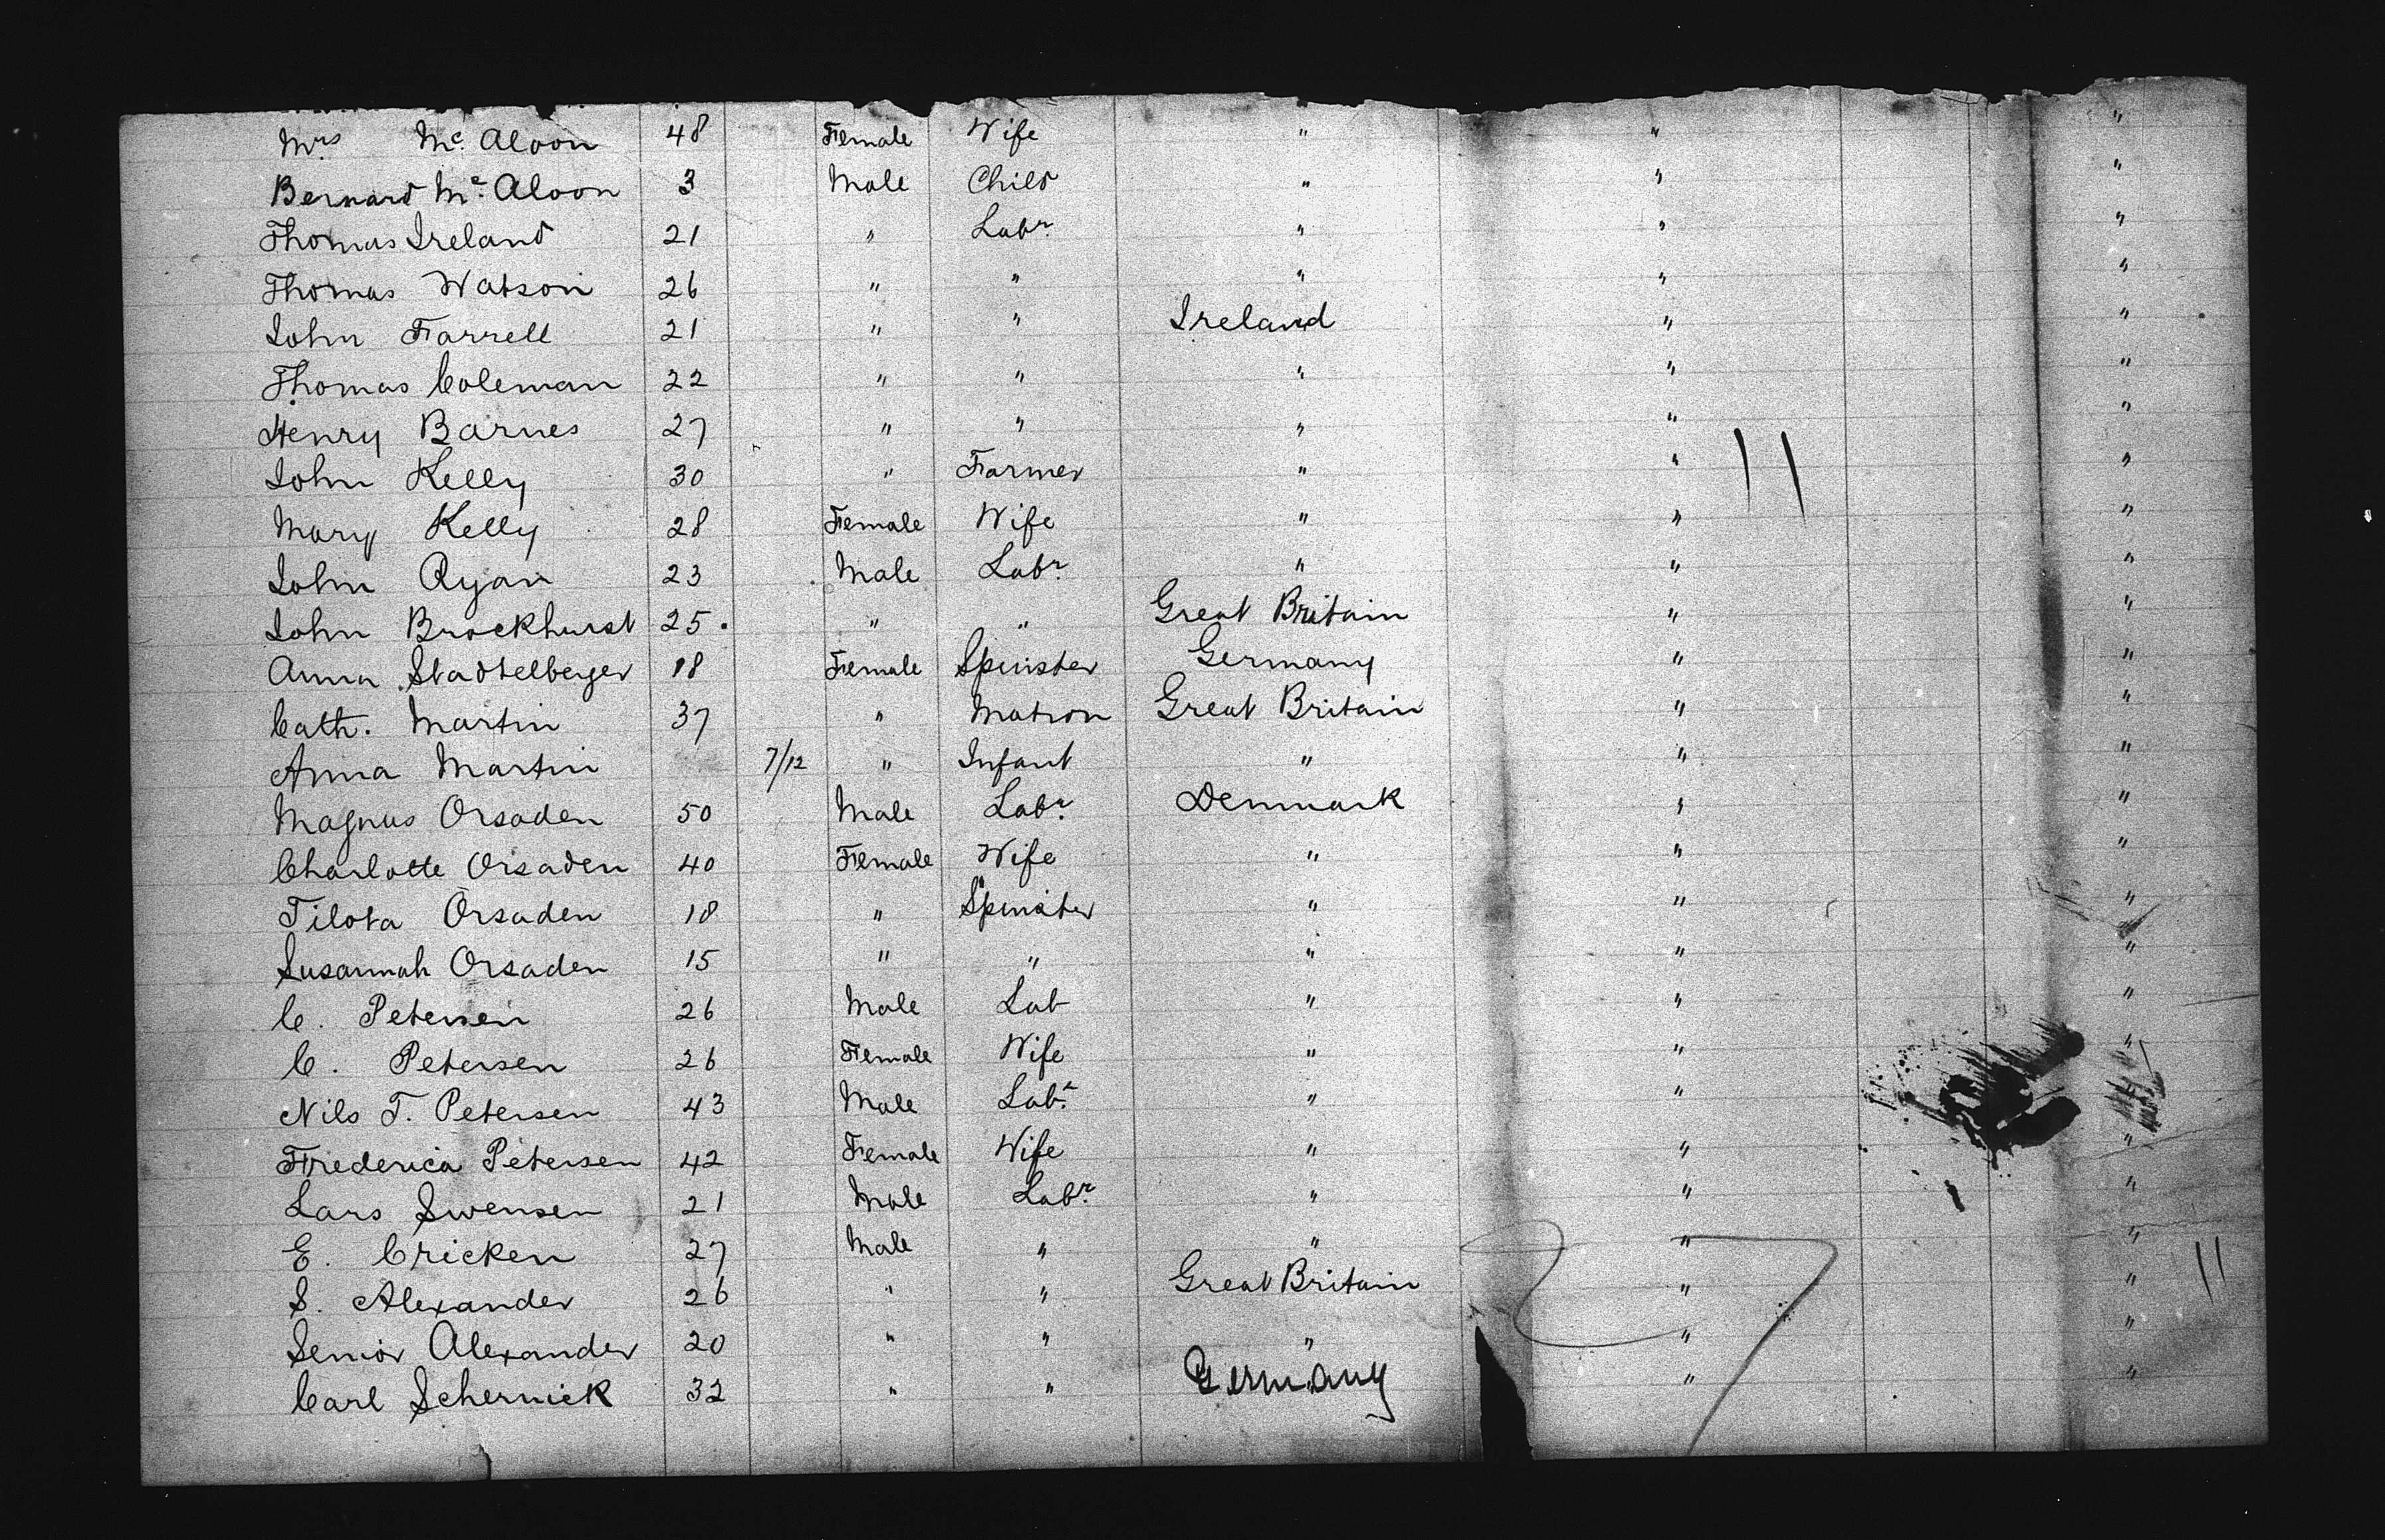 Mrs Mc Aloon 48 Female Wife " " "
Bernard Mc Aloon 3 Male Child " " "
Thomas Ireland 21 " Labr. " " "
Thomas Watson 26 " " " " "
John Farrell 21 " " Ireland " "
Thomas Coleman 22 " " " " "
Henry Barnes 27 " " " " "
John Kelly 30 " Farmer " " 11 "
Mary Kelly 28 Female Wife " " "
John Ryan 23 Male Labr. " " "
John Brockhurst 25 " " Great Britain " "
Anna Stadtelberger 18 Female Spinster Germany " "
Cath. Martin 37 " Matron Great Britain " "
Anna Martin 7/12 " Infant " " "
Magnus Orsaden 50 Male Labr. Denmark " "
Charlotte Orsaden 40 Female Wife " " "
Tilota Orsaden 18 " Spinster " " "
Susannah Orsaden 15 " " " " "
C. Petersen 26 Male Lab " " "
C. Petersen 26 Female Wife " " "
Nils T. Petersen 43 Male Labr. " "
Frederica Petersen 42 Female Wife " " "
Lars Swensen 21 Male Labr. " " "
E. Cricken 27 Male " " " "
S. Alexander 26 " " Great Britain " 27 " 11
Senior Alexander 20 " " " " "
Carl Schernick 32 " " Germany " "